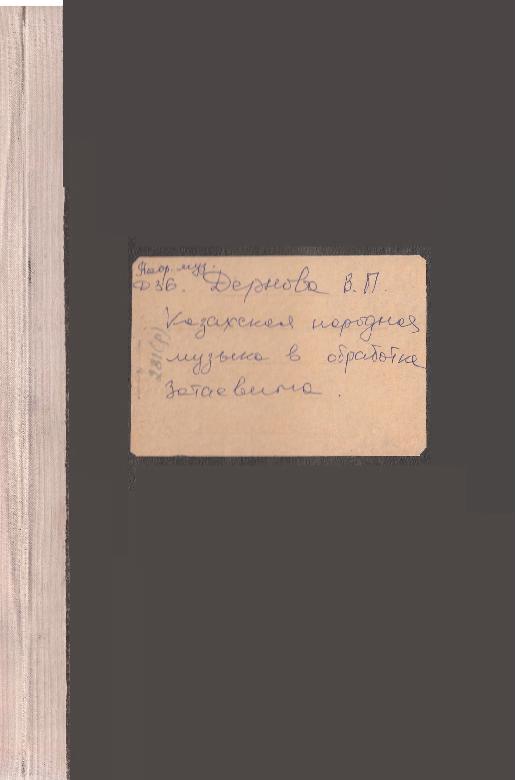 Д36. Дернова В.П.
Казахская народная
музыка в обработке
Затаевича.
281(р)